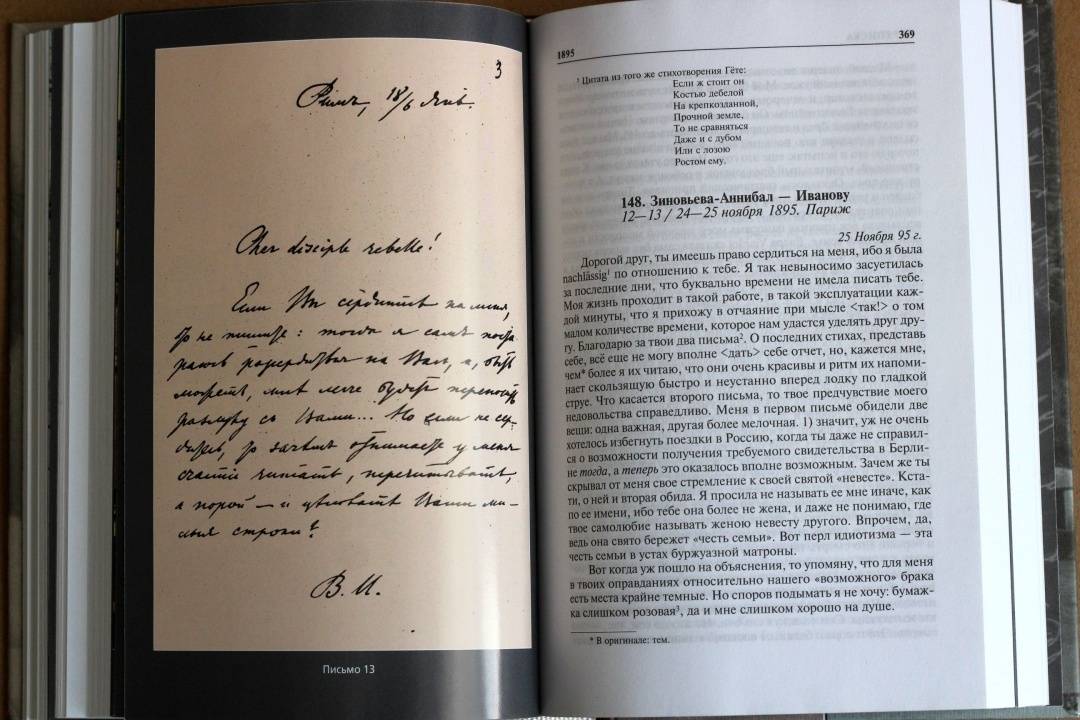 3
Римъ, 18/6 Янв.
Cher disciple rebelle!
Если Вы сердитесь на меня,
то не пишите: тогда я самъ поста
раюсь разсердиться на Васъ, а, быть
можетъ, мнѣ легче будетъ переносить
разлуку съ Вами... Но если не сер-
дитесь, то зачѣмъ отнимаете у меня
счастіе читать, перечитывать,
а порой – и цѣловать Ваши ми-
лыя строки?
В. И.
Письмо 13
1895
369
¹ Цитата из того же стихотворения Гёте:
Если ж стоит он
Костью дебелой
На крепкозданной,
Прочной земле,
То не сравняться
Даже и с дубом
Или с лозою
Ростом ему.
148. Зиновьева-Аннибал — Иванову
12—13 / 24—25 ноября 1895. Париж
25 Ноября 95 г.
Дорогой друг, ты имеешь право сердиться на меня, ибо я была
nachlässig¹ по отношению к тебе. Я так невыносимо засуетилась
за последние дни, что буквально времени не имела писать тебе.
Моя жизнь проходит в такой работе, в такой эксплуатации каж-
дой минуты, что я прихожу в отчаяние при мысле <так!> о том
малом количестве времени, которое нам удастся уделять друг дру-
гу. Благодарю за твои два письма². О последних стихах, представь
себе, всё еще не могу вполне <дать> себе отчет, но, кажется мне,
чем* более я их читаю, что они очень красивы и ритм их напоми-
нает скользящую быстро и неустанно вперед лодку по гладкой
струе. Что касается второго письма, то твое предчувствие моего
недовольства справедливо. Меня в первом письме обидели две
вещи: одна важная, другая более мелочная. 1) значит, уж не очень
хотелось избегнуть поездки в Россию, когда ты даже не справил-
ся о возможности получения требуемого свидетельства в Берли-
не тогда, а теперь это оказалось вполне возможным. Зачем же ты
скрывал от меня свое стремление к своей святой «невесте». Кста-
ти, о ней и вторая обида. Я просила не называть ее мне иначе, как
по ее имени, ибо тебе она более не жена, и даже не понимаю, где
твое самолюбие называть женою невесту другого. Впрочем, да,
ведь она свято бережет «честь семьи». Вот перл идиотизма — эта
честь семьи в устах буржуазной матроны.
Вот когда уж пошло на объяснения, то упомяну, что для меня
в твоих оправданиях относительно нашего «возможного» брака
есть места крайне темные. Но споров подымать я не хочу: бумаж-
ка слишком розовая³, да и мне слишком хорошо на душе.
* В оригинале: тем.